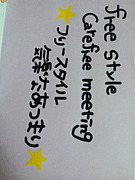 free style
Carefree meeting
フリースタイル
気楽なあつまり